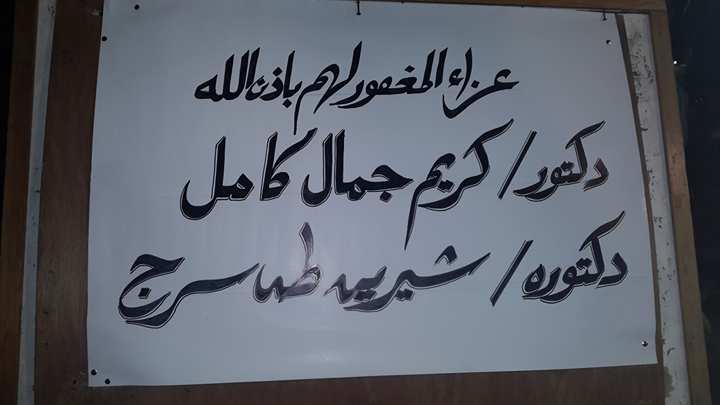 عزاء المغفور لهم باذن الله
دكتور / كريم جمال كامل
دكتوره / شيرين طه سرج